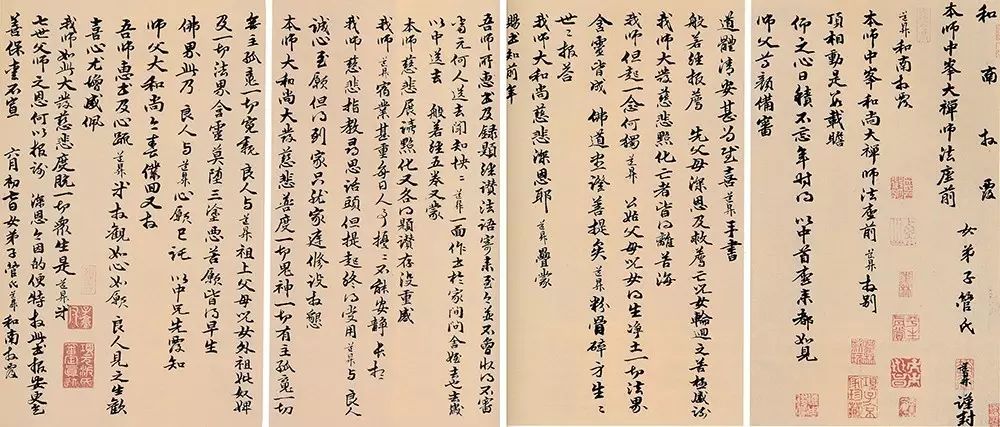 和南拜覆
女弟子管氏 道昇 謹封
本師中峯大禪師法座前
道昇和南拜覆
本師中峯和尚大禪師法座前 道昇拜別
頂相動是數載瞻
仰之心日積不忘年時得 以中首座來都如見
師父尊顏備審
道體清安甚為陸喜 道昇手書
般若經報薦 先父母深恩及救薦亡兒女輪迴之苦極感謝
我師大發慈悲點化亡者皆得離苦海
我師但起一念何獨 道昇 公姑父母兒女得生淨土一切法界
含靈皆成 佛道出證 菩提矣 道昇粉骨碎身生生
世世報答
我師大和尚慈悲深恩耶 道昇疊蒙
賜書知前年
吾師所惠書及錄題經讚法語寄來至今並不曾收得不審
當元何人送去聞知怏怏 道昇一面作書於家間問舍姪去也去歲
以中送去 般若經五卷又蒙
本師慈悲展讀點化又各得題讚存沒重感
我師 道昇宿業甚重每日人事擾擾不能安靜長想
我師慈悲指教尋思話頭但提起終得受用 道昇與良人
誠心至願但得到家只就家庭修設拜懇
本師大和尚大發慈悲普度一切鬼神一切有主孤魂一切
無主孤魂一切冤親良人與 道昇祖上父母兒女外祖妣奴婢
及一切法界含靈莫墮三塗惡苦願皆得早生
佛界此乃 良人與 道昇心願已託 以中兄先覆知
師父大和尚今春僕回又拜
吾師惠書及心疏 道昇弟拜觀如心如願良人見之生歡
喜心尤增感佩
我師如此大發慈悲度脫一切衆生是 道昇弟
七世父師之恩何以報謝 深恩今因的便特拜此書報安更乞
善保重不宣
六月初七日女弟子管氏 道昇和南拜覆